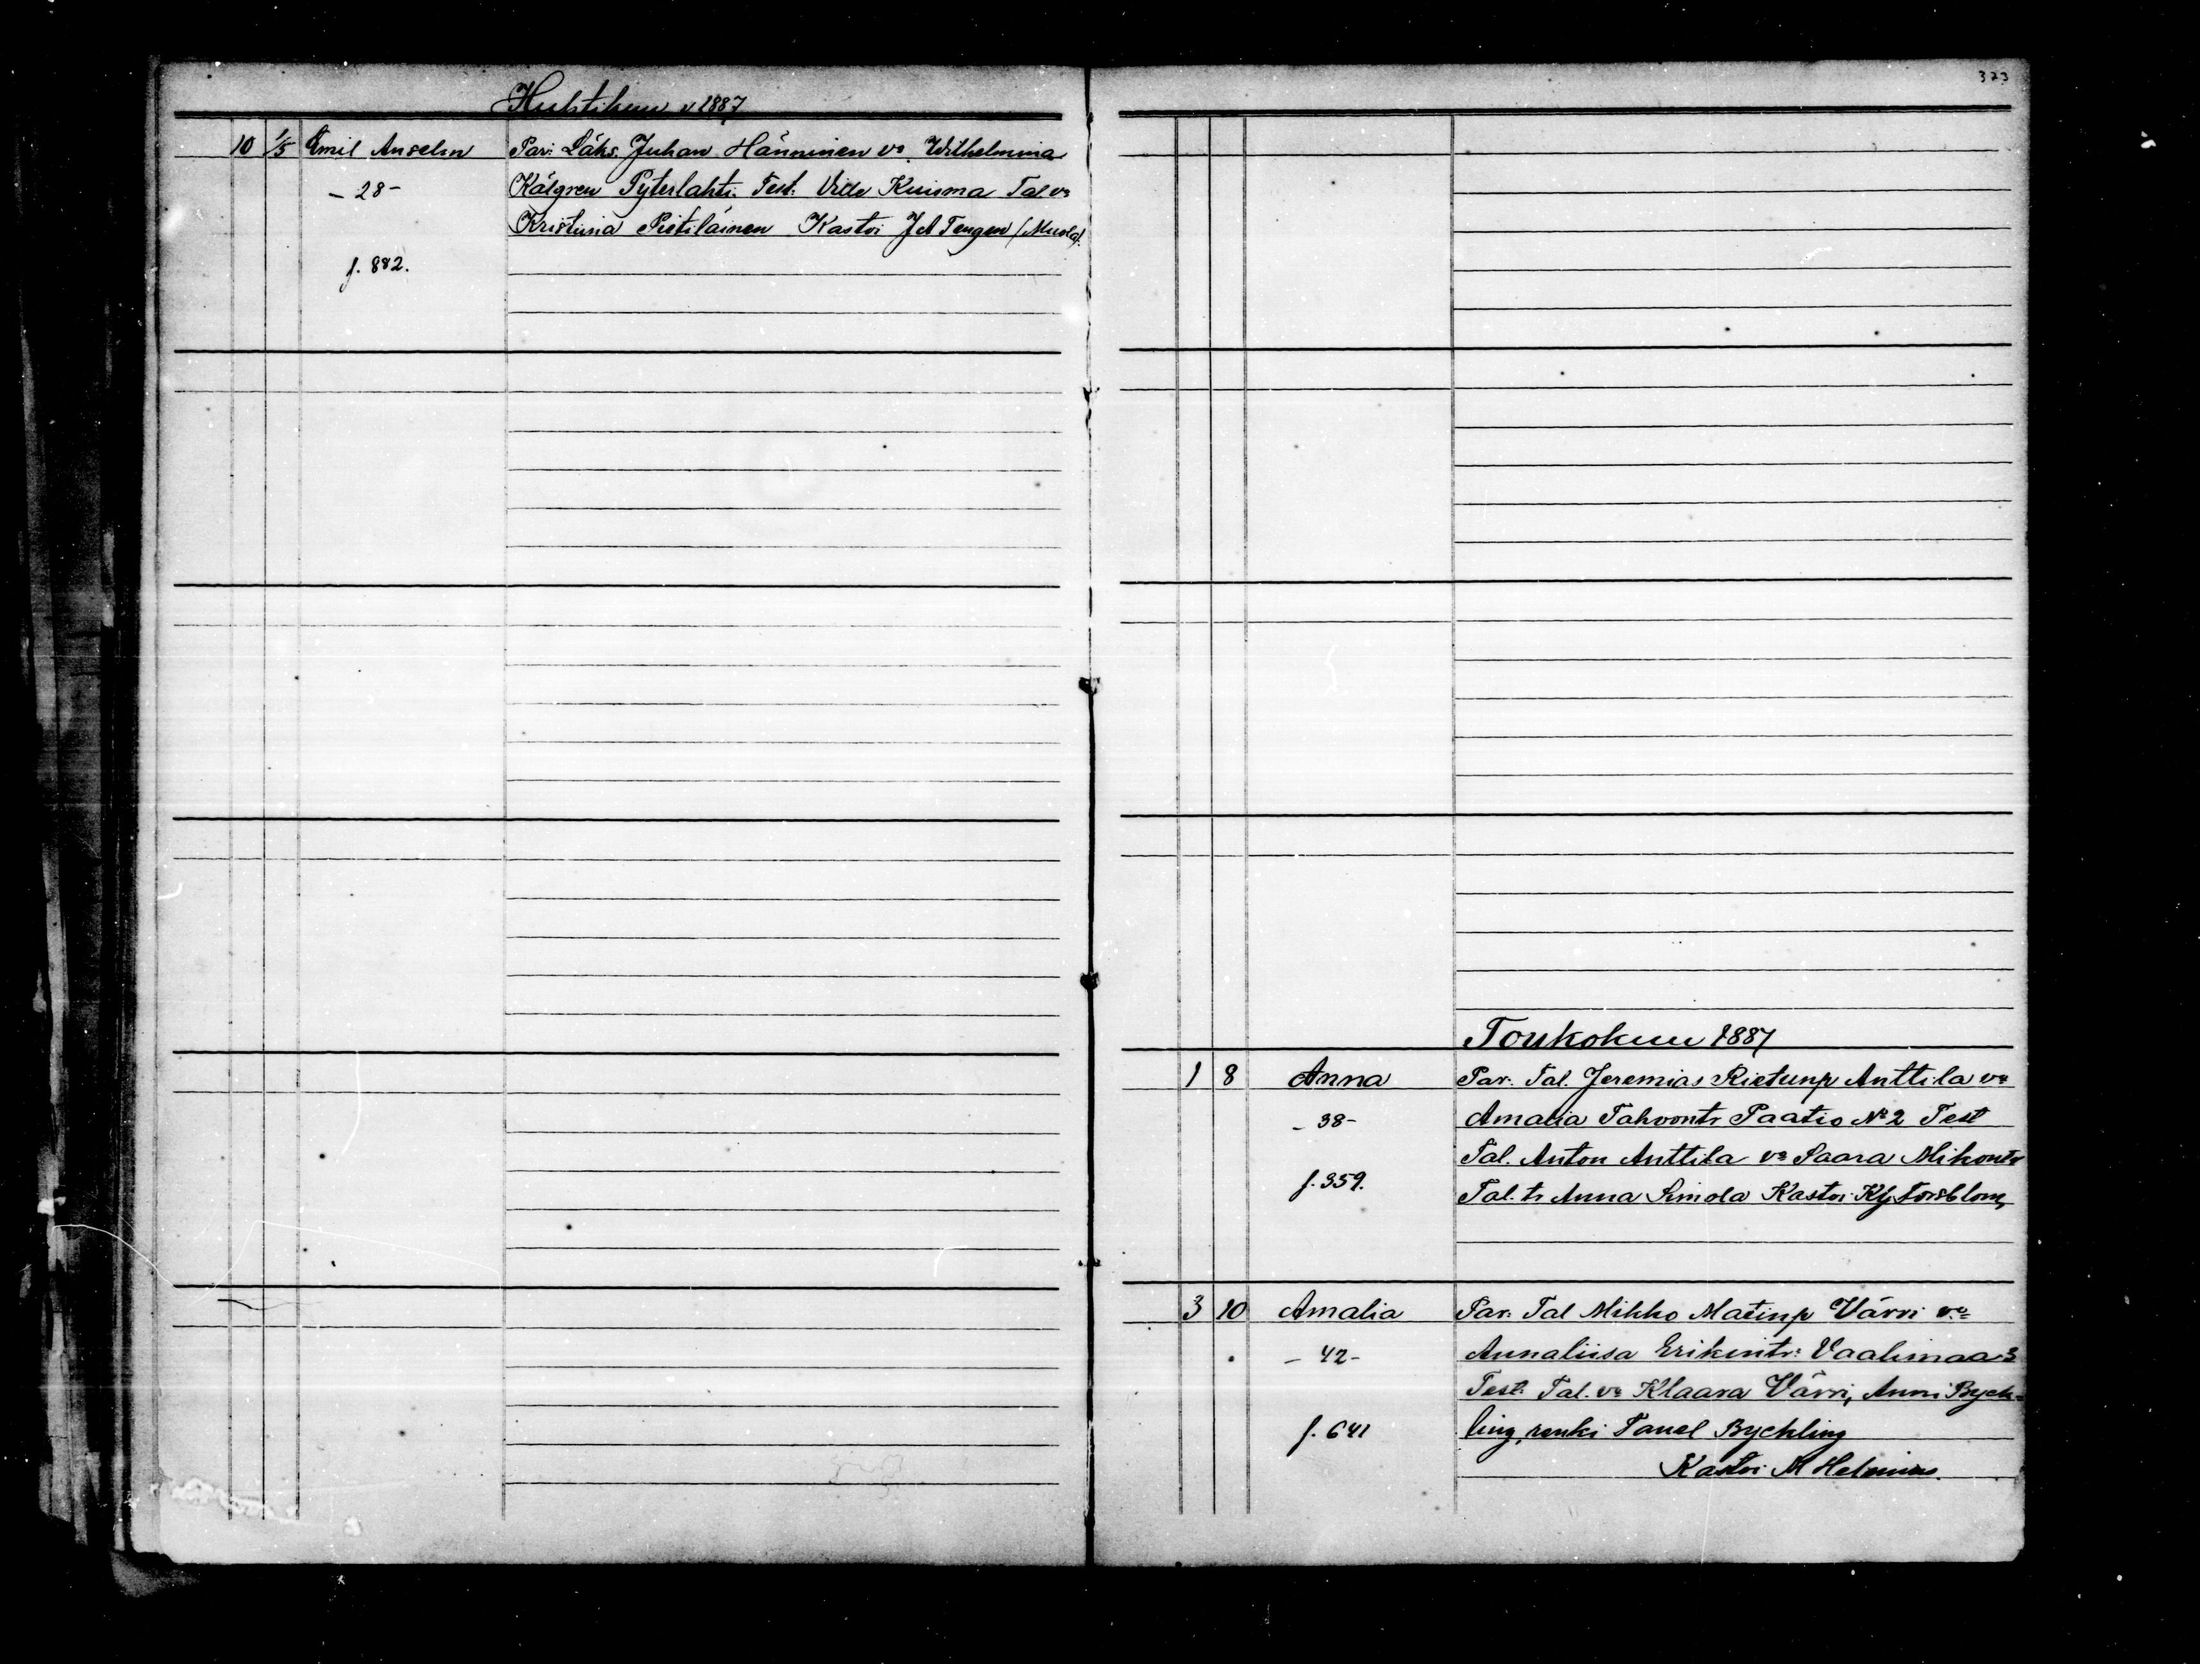 Huhtikuu v 1887
10 1/5 Emil Anselm Par: Läks. Juhan Hänninen vo. Wilhelmina
- 28 - Kälgren Pyterlahti. Test: Ville Kuisma Tal. vo
Kristiina Pietiläinen Kastoi J A Tengen (Muola).
f. 882.
323
Toukokuu 1887
1 8 Anna Par: Tal. Jeremias Rietunp Anttila vo
- 38 - Amalia Tahvontr Paatio No 2 Test
Tal. Anton Anttila vo Saara Mikontr
f. 359. Tal. tr Anna Simola Kastoi Kl Forsblom,
3 10 Amalia Par: Tal Mikko Matinp Värri vo
- 42 - Annaliisa Erikintr: Vaalimaa 3
Test: Tal. vo Klaara Värri, Anni Bych-
f. 641 ling, renki Tanel Bychling
Kastoi M Helenius.